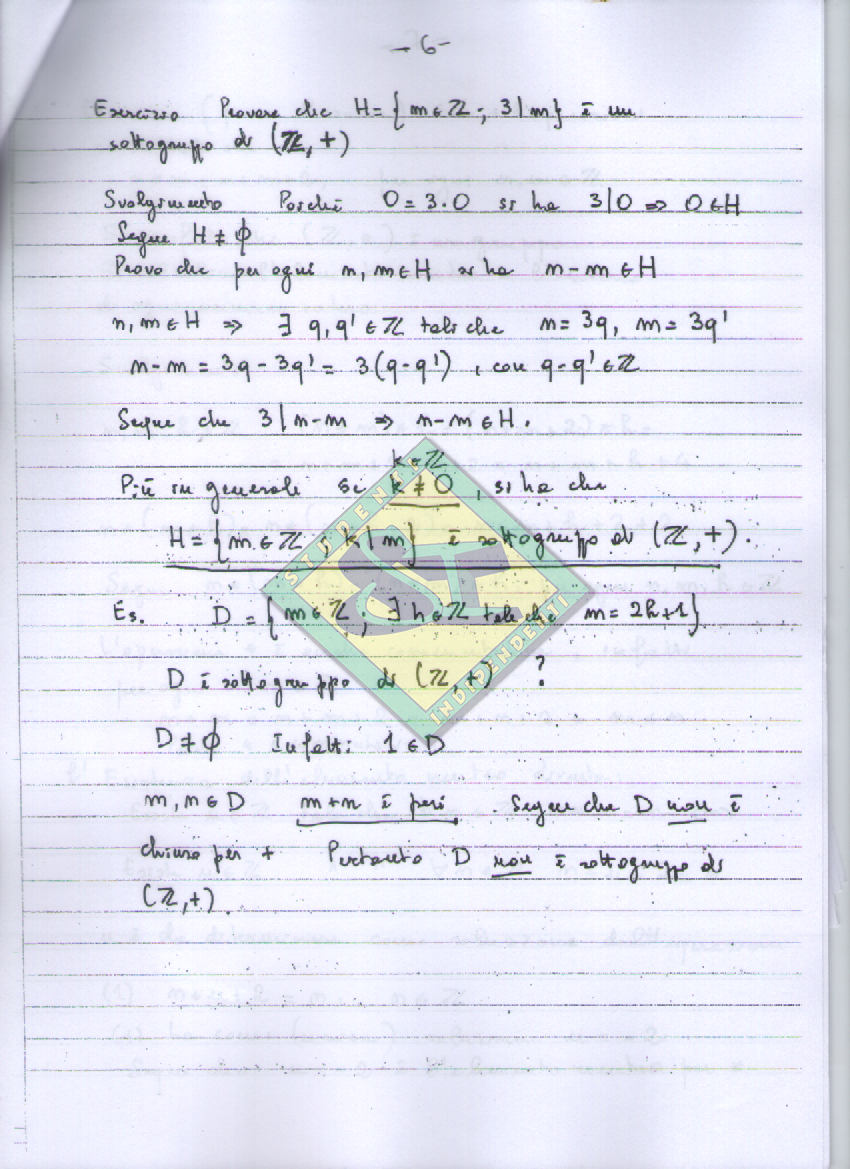 - 6 -
Esercizio Provare che H = { m ∈ ℤ ; 3 | m } è un
sottogruppo di (ℤ, +)
Svolgimento Poiché 0 = 3·0 si ha 3|0 ⇒ 0 ∈ H
Segue H ≠ ∅
Provo che per ogni n, m ∈ H si ha n - m ∈ H
n, m ∈ H ⇒ ∃ q, q' ∈ ℤ tali che n = 3q, m = 3q'
n - m = 3q - 3q' = 3(q - q') , con q - q' ∈ ℤ
Segue che 3 | n - m ⇒ n - m ∈ H.
k ∈ ℤ
Più in generale se k ≠ 0 , si ha che
H = { m ∈ ℤ ; k | m } è sottogruppo di (ℤ, +).
Es. D = { m ∈ ℤ ; ∃ h ∈ ℤ tale che m = 2h + 1 }
D è sottogruppo di (ℤ, +) ?
D ≠ ∅ Infatti 1 ∈ D
m, n ∈ D m + n è pari . Segue che D non è
chiuso per + Pertanto D non è sottogruppo di
(ℤ, +) .
STUDENTI
SI
INDIPENDENTI